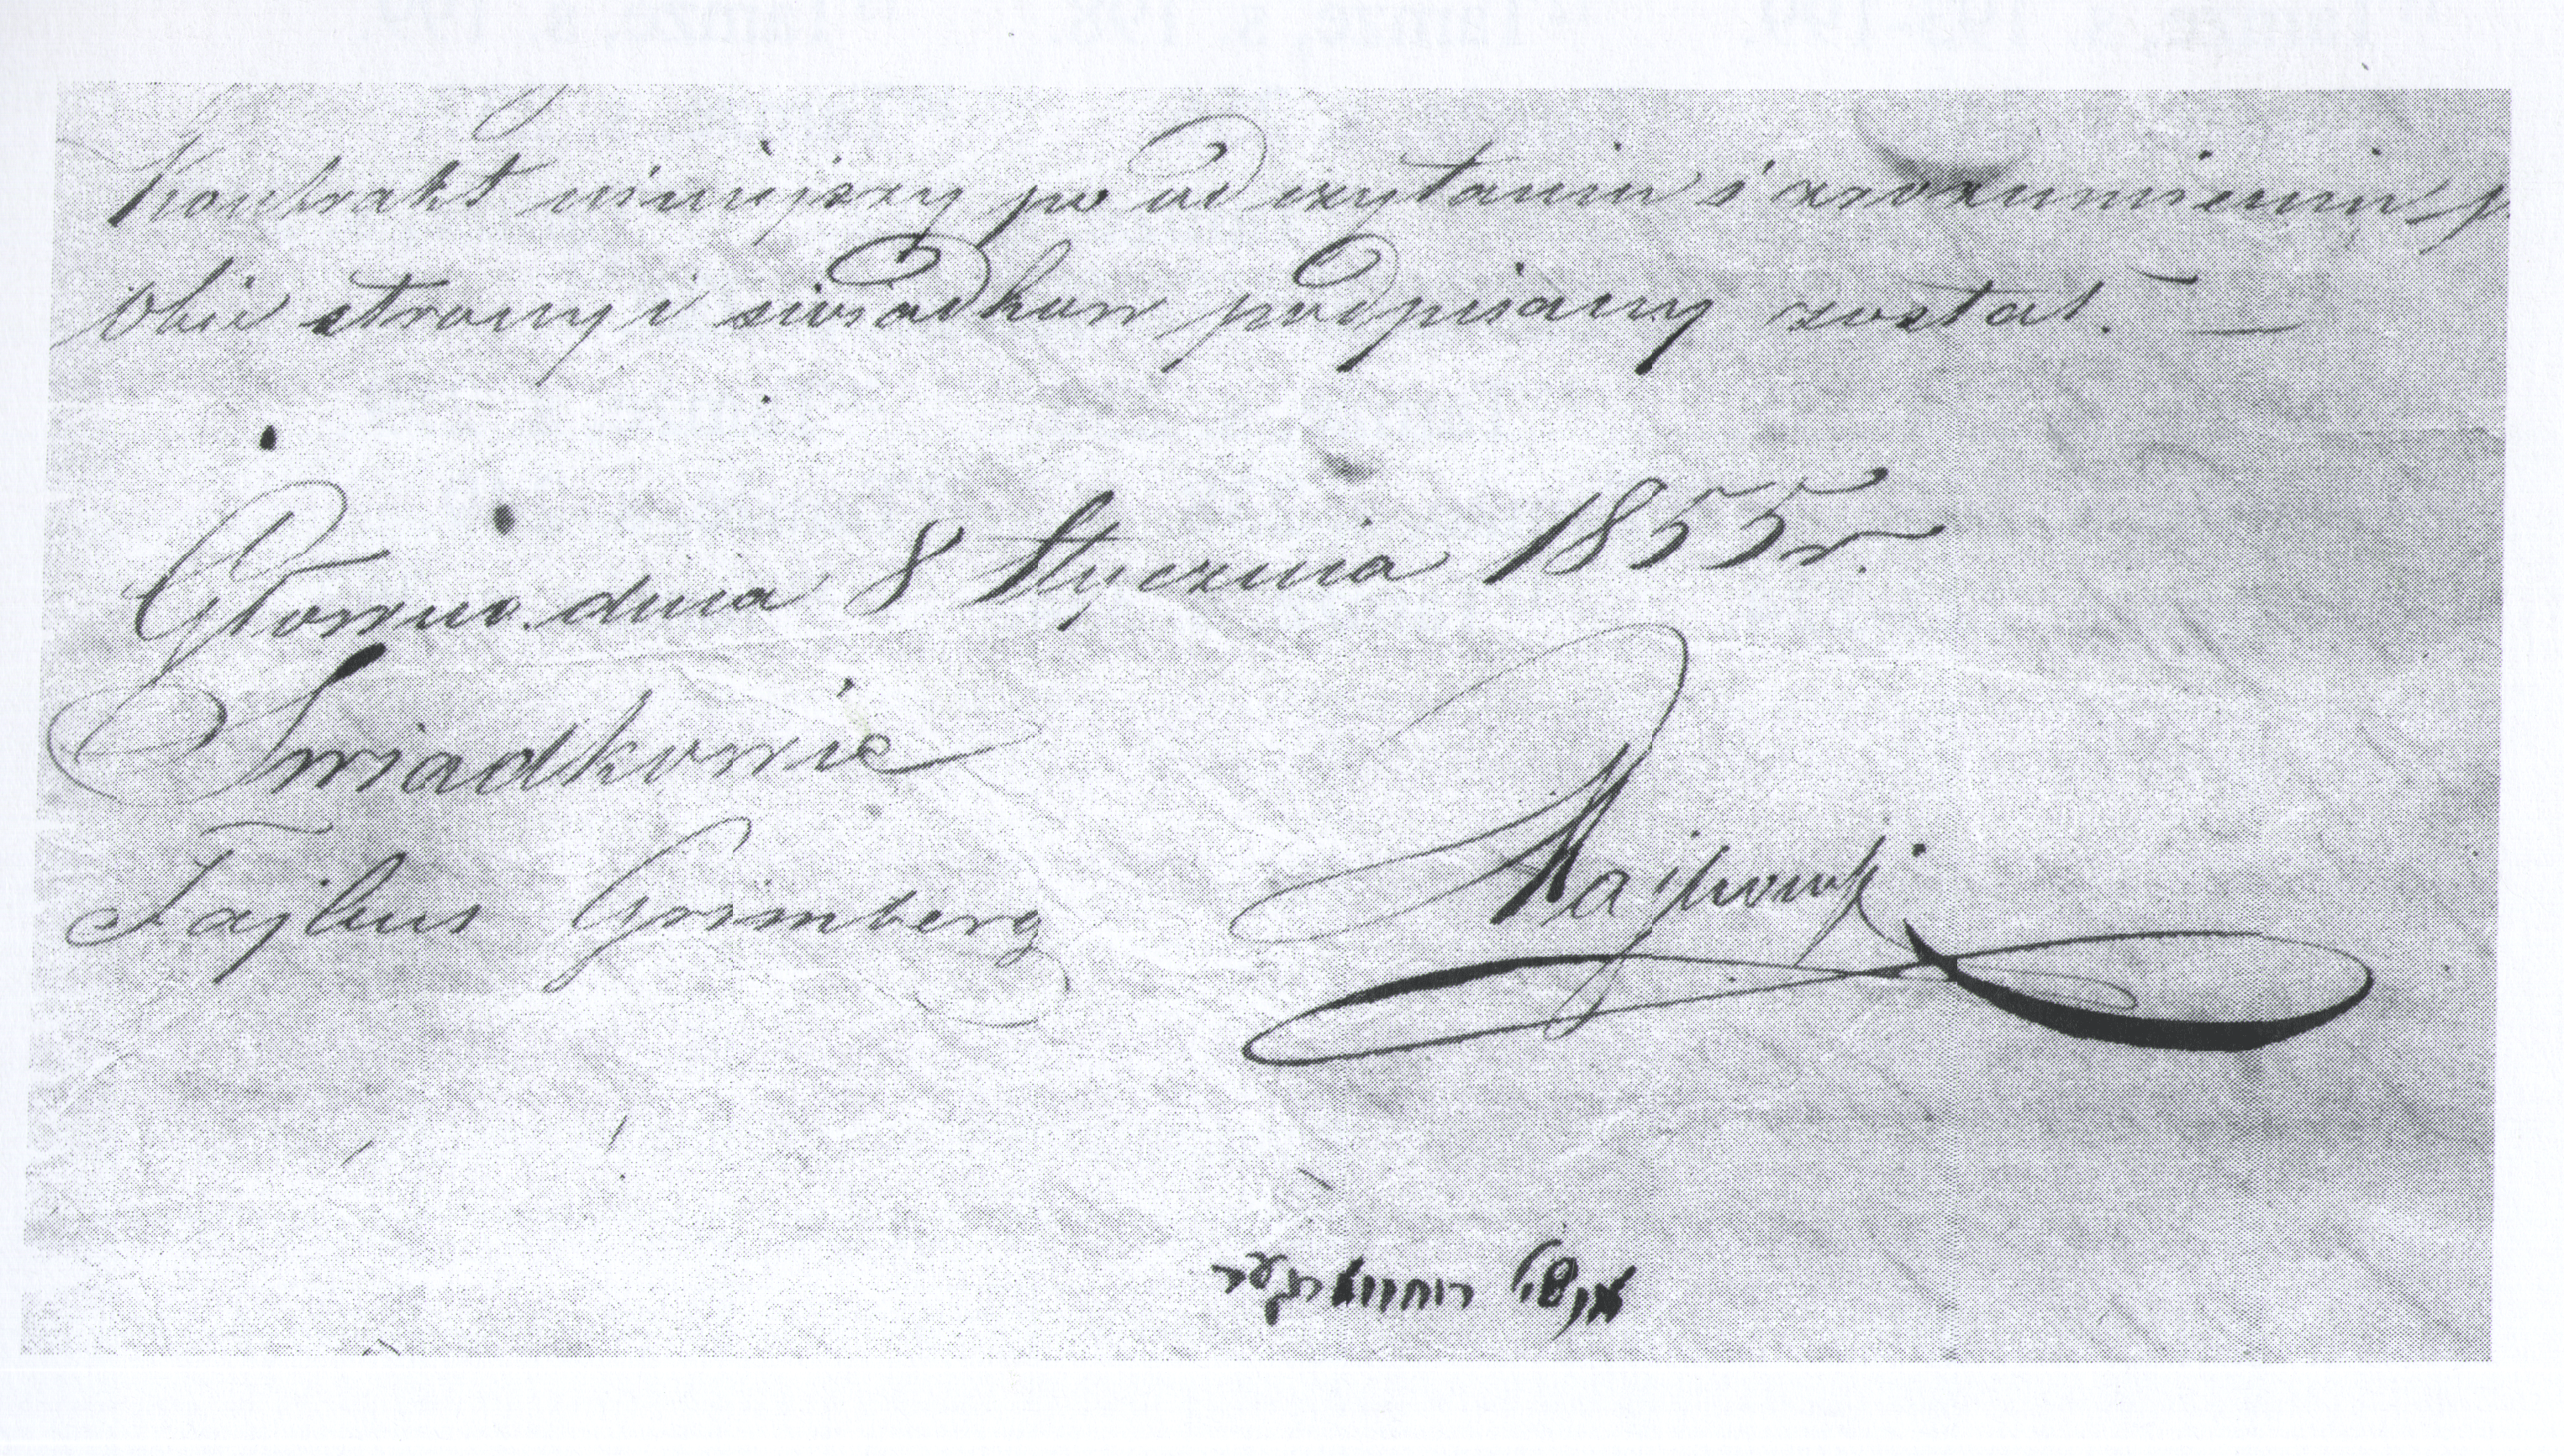 Kontrakt niniejszy po odczytaniu i zrozumieniu
obie strony i swiadkow podpisany został. —
Głowno. dnia 8 Stycznia 1855 r.
Swiadkowie
Fajbus Grimberg